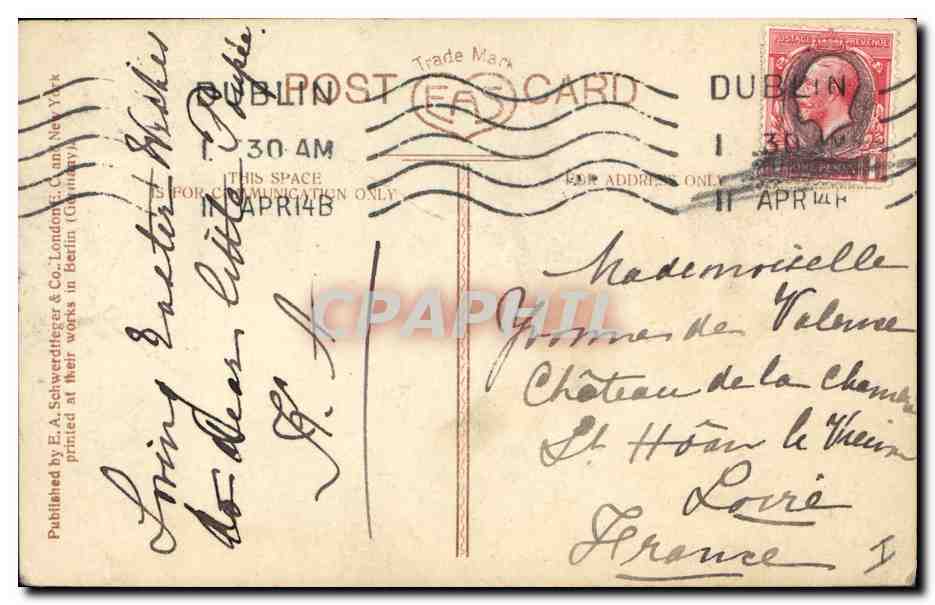 Published by E. A. Schwerdtfeger & Co., London E. C. and New York
printed at their works in Berlin (Germany).
Trade Mark
EAS
POST CARD
THIS SPACE
IS FOR COMMUNICATION ONLY
FOR ADDRESS ONLY
POSTAGE REVENUE
DUBLIN
1 30 AM
11 APR 14 B
DUBLIN
1 30 AM
11 APR 14 B
Loving Easter Wishes
to dear little Poupée.
Mademoiselle
Yvonne de Valence
Château de la
St Hôan le Vieux
Loire
France
CPAPHIL